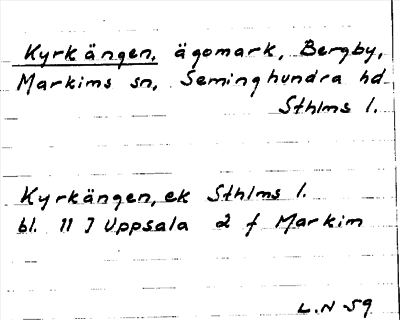 Kyrkängen, ägomark, Bergby,
Markims sn, Seminghundra hd
Sthlms l.
Kyrkängen, ek Sthlms l.
bl. 11 J Uppsala 2 f Markim
L.N 59